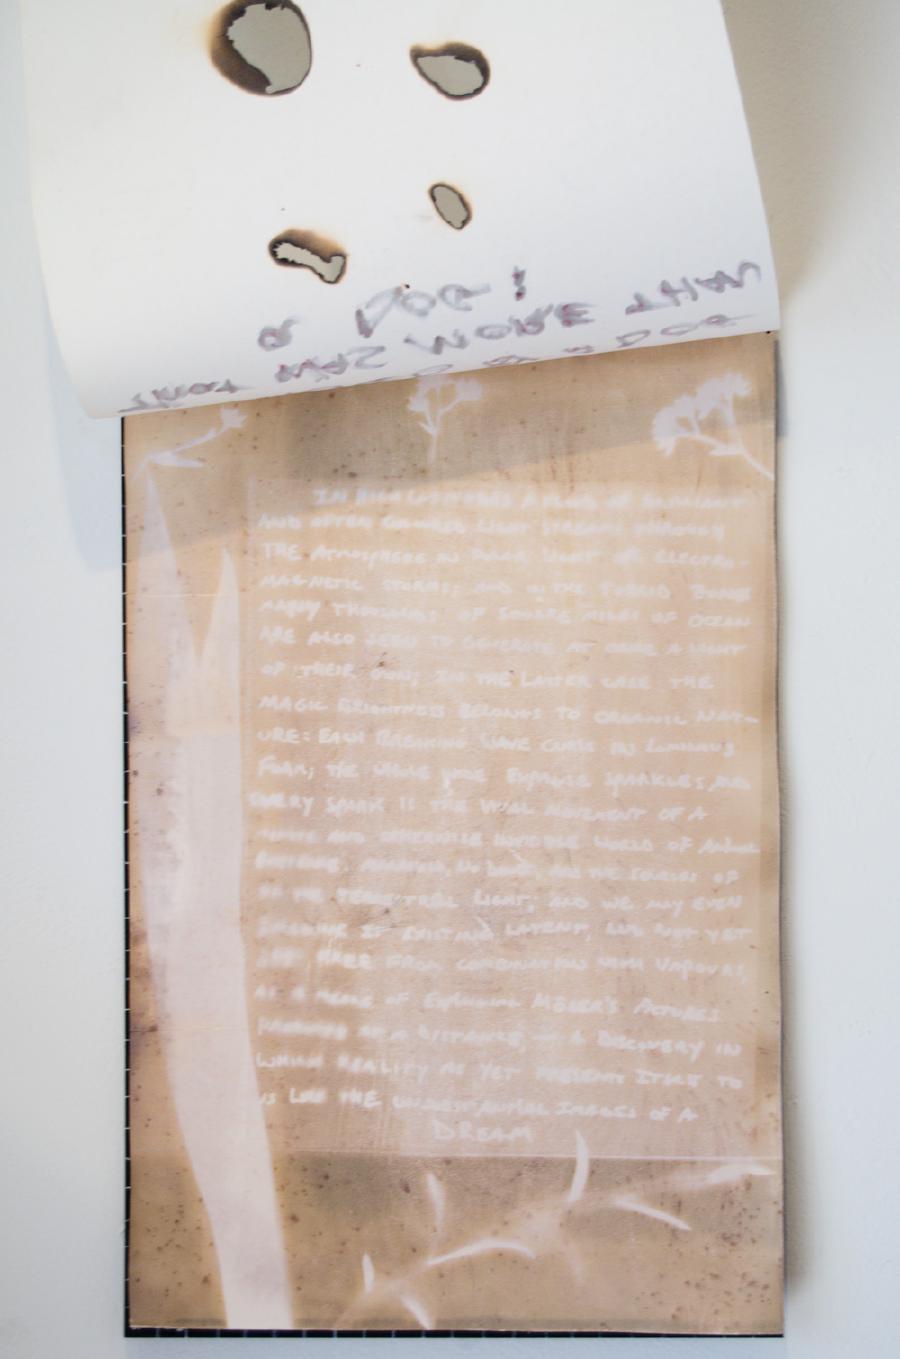 A DOG!
THAT WAS MORE THAN
A DOG
IN HIGH LATITUDES A
AND OFTEN COLORED LIGHT STREAMS THROUGH
THE ATMOSPHERE IN LIGHT OF ELECTRO-
MAGNETIC STORMS; AND IN THE TORRID ZONE
MANY THOUSANDS OF SQUARE MILES OF OCEAN
ARE ALSO SEEN TO GENERATE AT ONCE A LIGHT
OF THEIR OWN; IN THE LATTER CASE THE
MAGIC BRIGHTNESS BELONGS TO ORGANIC NAT-
URE: EACH BREAKING WAVE CURLS IN LUMINOUS
FOAM; THE WHOLE WIDE EXPANSE SPARKLES, AND
EVERY SPARK IS THE VITAL MOVEMENT OF A
AND OTHERWISE INVISIBLE WORLD OF ANIMAL
EXISTENCE. NO DOUBT, ARE THE SOURCES OF
TERRESTRIAL LIGHT; AND WE MAY EVEN
IMAGINE IT EXISTING LATENT, BUT NOT YET
SET FREE FROM COMBINATION WITH VAPOURS,
AS A MEANS OF EXPLAINING MOSER'S PICTURES
PRODUCED AT A DISTANCE, — A DISCOVERY IN
WHICH REALITY AS YET PRESENTS ITSELF TO
US LIKE THE UNSUBSTANTIAL IMAGES OF A
DREAM